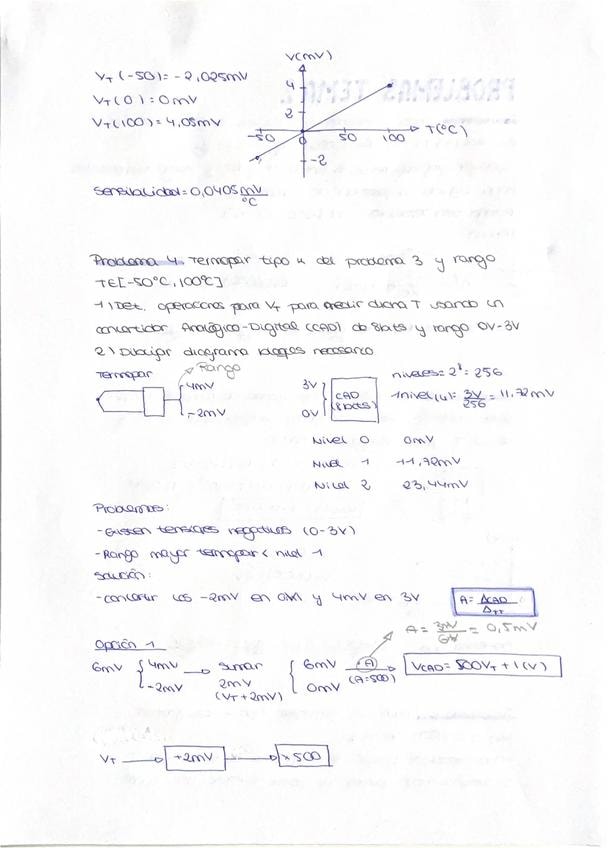 V(mV)
V_T(-50)=-2,025mV
V_T(0)=0mV
V_T(100)=4,05mV
4
2
-50 0 50 100 T(ºC)
-2
Sensibilidad=0,0405 mV/ºC
Problema 4. Termopar tipo K del problema 3 y rango
TE[-50ºC,100ºC]
1) Det. operaciones para V_T para medir dicha T usando un
convertidor Analógico-Digital (CAD) de 8bits y rango 0V-3V
2) Dibujar diagrama bloques necesario.
Termopar Rango
4mV
-2mV
3V
0V
CAD
(8bits)
niveles=2⁸=256
1nivel(u)=3V/256=11,72mV
Nivel 0 0mV
Nivel 1 11,72mV
Nivel 2 23,44mV
Problemas:
-Existen tensiones negativas (0-3V)
-Rango mayor termopar< nivel 1
Solución:
-convertir los -2mV en 0V y 4mV en 3V
A=Δ_CAD/Δ_TT
A=3V/6V=0,5mV
Opción 1
6mV { 4mV → sumar { 6mV (A) → V_CAD=500V_T+1(V)
-2mV 2mV 0mV (A=500)
(V_T+2mV)
V_T → +2mV → ×500